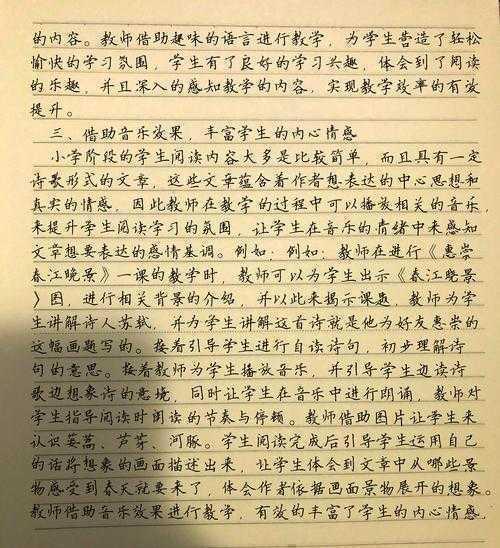 的内容。教师借助趣味的语言进行教学，为学生营造了轻松
愉快的学习氛围，学生有了良好的学习兴趣，体会到了阅读
的乐趣，并且深入的感知教学的内容，实现教学效率的有效
提升。
三、借助音乐效果，丰富学生的内心情感
小学阶段的学生阅读内容大多是比较简单，而且具有一定
诗歌形式的文章，这些文章蕴含着作者想表达的中心思想和
真实的情感，因此教师在教学的过程中可以播放相关的音乐，
来提升学生阅读学习的氛围，让学生在音乐的情绪中来感知
文章想要表达的感情基调。例如：例如：教师在进行《惠崇
春江晚景》一课的教学时，教师可以为学生出示《春江晓景
》图，进行相关背景的介绍，并以此来揭示课题，教师为学
生讲解诗人苏轼，并为学生讲解这首诗就是他为好友惠崇的
这幅画题写的。接着引导学生进行自读诗句，初步理解诗
句的意思。接着教师为学生播放音乐，并引导学生边读诗
歌边想象诗的意境，同时让学生在音乐中进行朗诵，教师对
学生指导阅读时阅读的节奏与停顿。教师借助图片让学生来
认识蒌蒿、芦芽、河豚。学生阅读完成后引导学生运用自己
的话将想象的画面描述出来，让学生体会到文章中从哪些景
物感受到春天就要来了，体会作者依据画面景物展开的想象。
教师借助音乐效果进行教学，有效的丰富了学生的内心情感